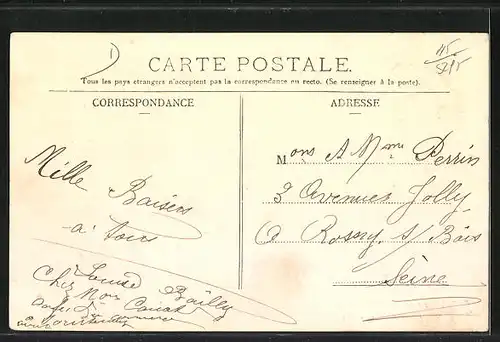 1)
45
CARTE POSTALE.
Tous les pays étrangers n'acceptent pas la correspondance au recto. (Se renseigner à la poste).
CORRESPONDANCE
ADRESSE
Mille
Baisers
a tous
Louise Bailly
Chez Mon
Mons A Mme Perrin
3 Avenues Jolly
a Rosny s/ Bois
Seine